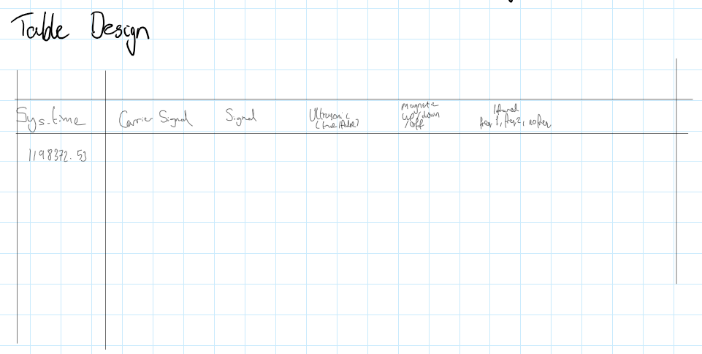 Table Design
Sys.time
Carrier Signal
Signal
Ultrasonic
(true/false)
Magnete
up/down
/off
Infrared
freq 1, freq 2, off
1198372.53